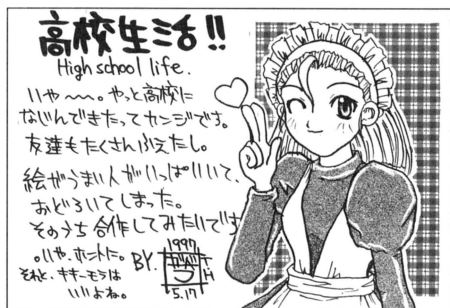 高校生活!!
High school life.
いや〜〜。やっと高校に
なじんできたってカンジです。
友達もたくさんふえたし。
絵がうまい人がいっぱいいて、
おどろいてしまった。
そのうち合作してみたいです
。いや、ホントに。
それと、キキーモラは
いいよね。
BY.
1997
5.17